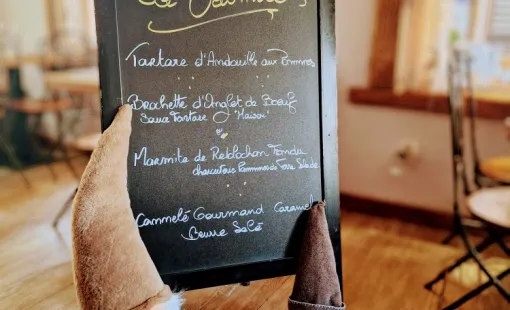 Tartare d'Andouille aux Pommes
Brochette d'Onglet de Boeuf
Sauce Tartare "Maison"
ou
Marmite de Reblochon Fondu
charcuterie Pommes de Terre Salade
Cammelé Gourmand Caramel
Beurre Salé